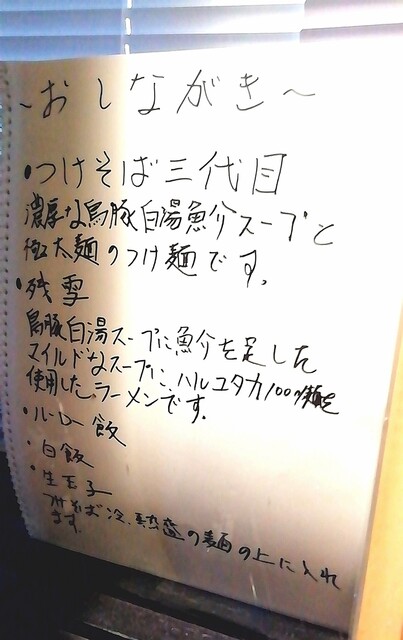 ～おしながき～
・つけそば三代目
濃厚な鳥豚白湯魚介スープと
極太麺のつけ麺です。
・残雪
鳥豚白湯スープに魚介を足した
マイルドなスープに、ハルユタカ100%麺を
使用したラーメンです。
・ルーロー飯
・白飯
・生玉子
つけそば冷、熱盛の麺の上に入れ
ます。